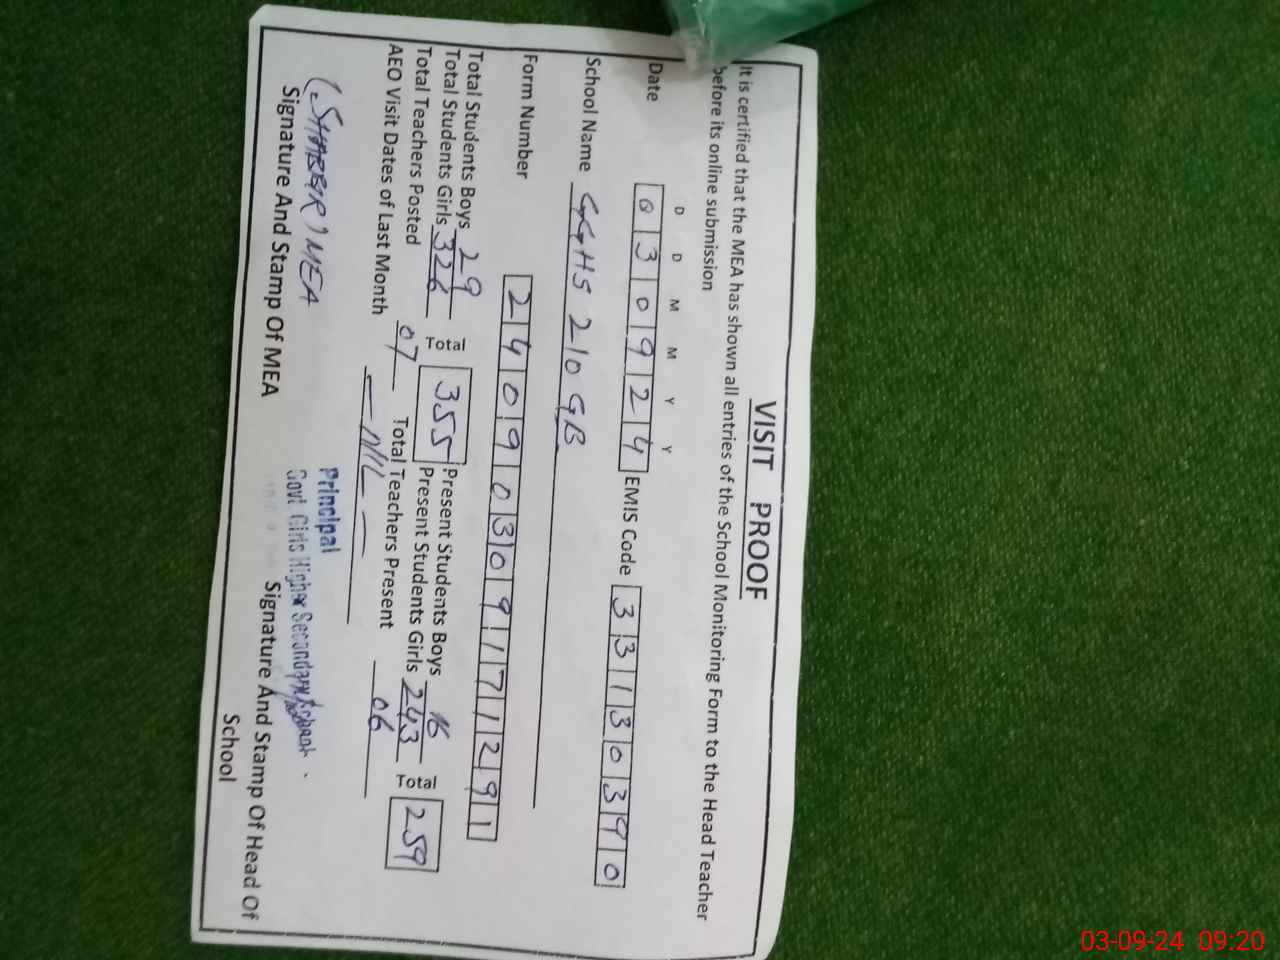 VISIT PROOF
It is certified that the MEA has shown all entries of the School Monitoring Form to the Head Teacher
before its online submission
D D M M Y Y
Date 030924 EMIS Code 33130390
School Name GGHS 210 GB
Form Number 24090309171291
Total Students Boys 29 Total 355 Present Students Boys 16 Total 259
Total Students Girls 326 Present Students Girls 243
Total Teachers Posted 07 Total Teachers Present 06
AEO Visit Dates of Last Month — NIL —
(SHABBIR) MEA
Signature And Stamp Of MEA
Principal
Govt Girls Higher Secondary School
Signature And Stamp Of Head Of
School
03-09-24 09:20